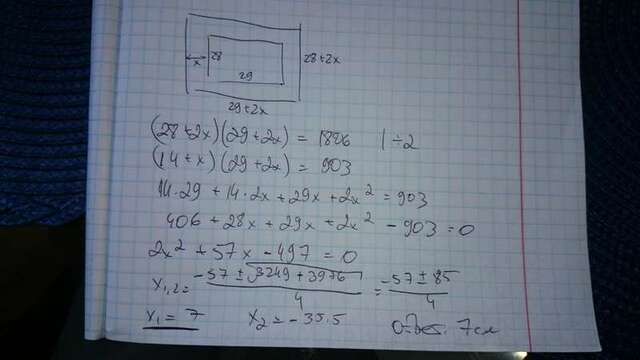 x 28 28+2x
29
29+2x
(28+2x)(29+2x) = 1886 | ÷2
(14+x)(29+2x) = 903
14·29 + 14·2x + 29x + 2x² = 903
406 + 28x + 29x + 2x² - 903 = 0
2x² + 57x - 497 = 0
x₁,₂ = (-57 ± √(3249 + 3976))/4 = (-57 ± 85)/4
x₁ = 7 x₂ = -35.5 Ответ. 7см